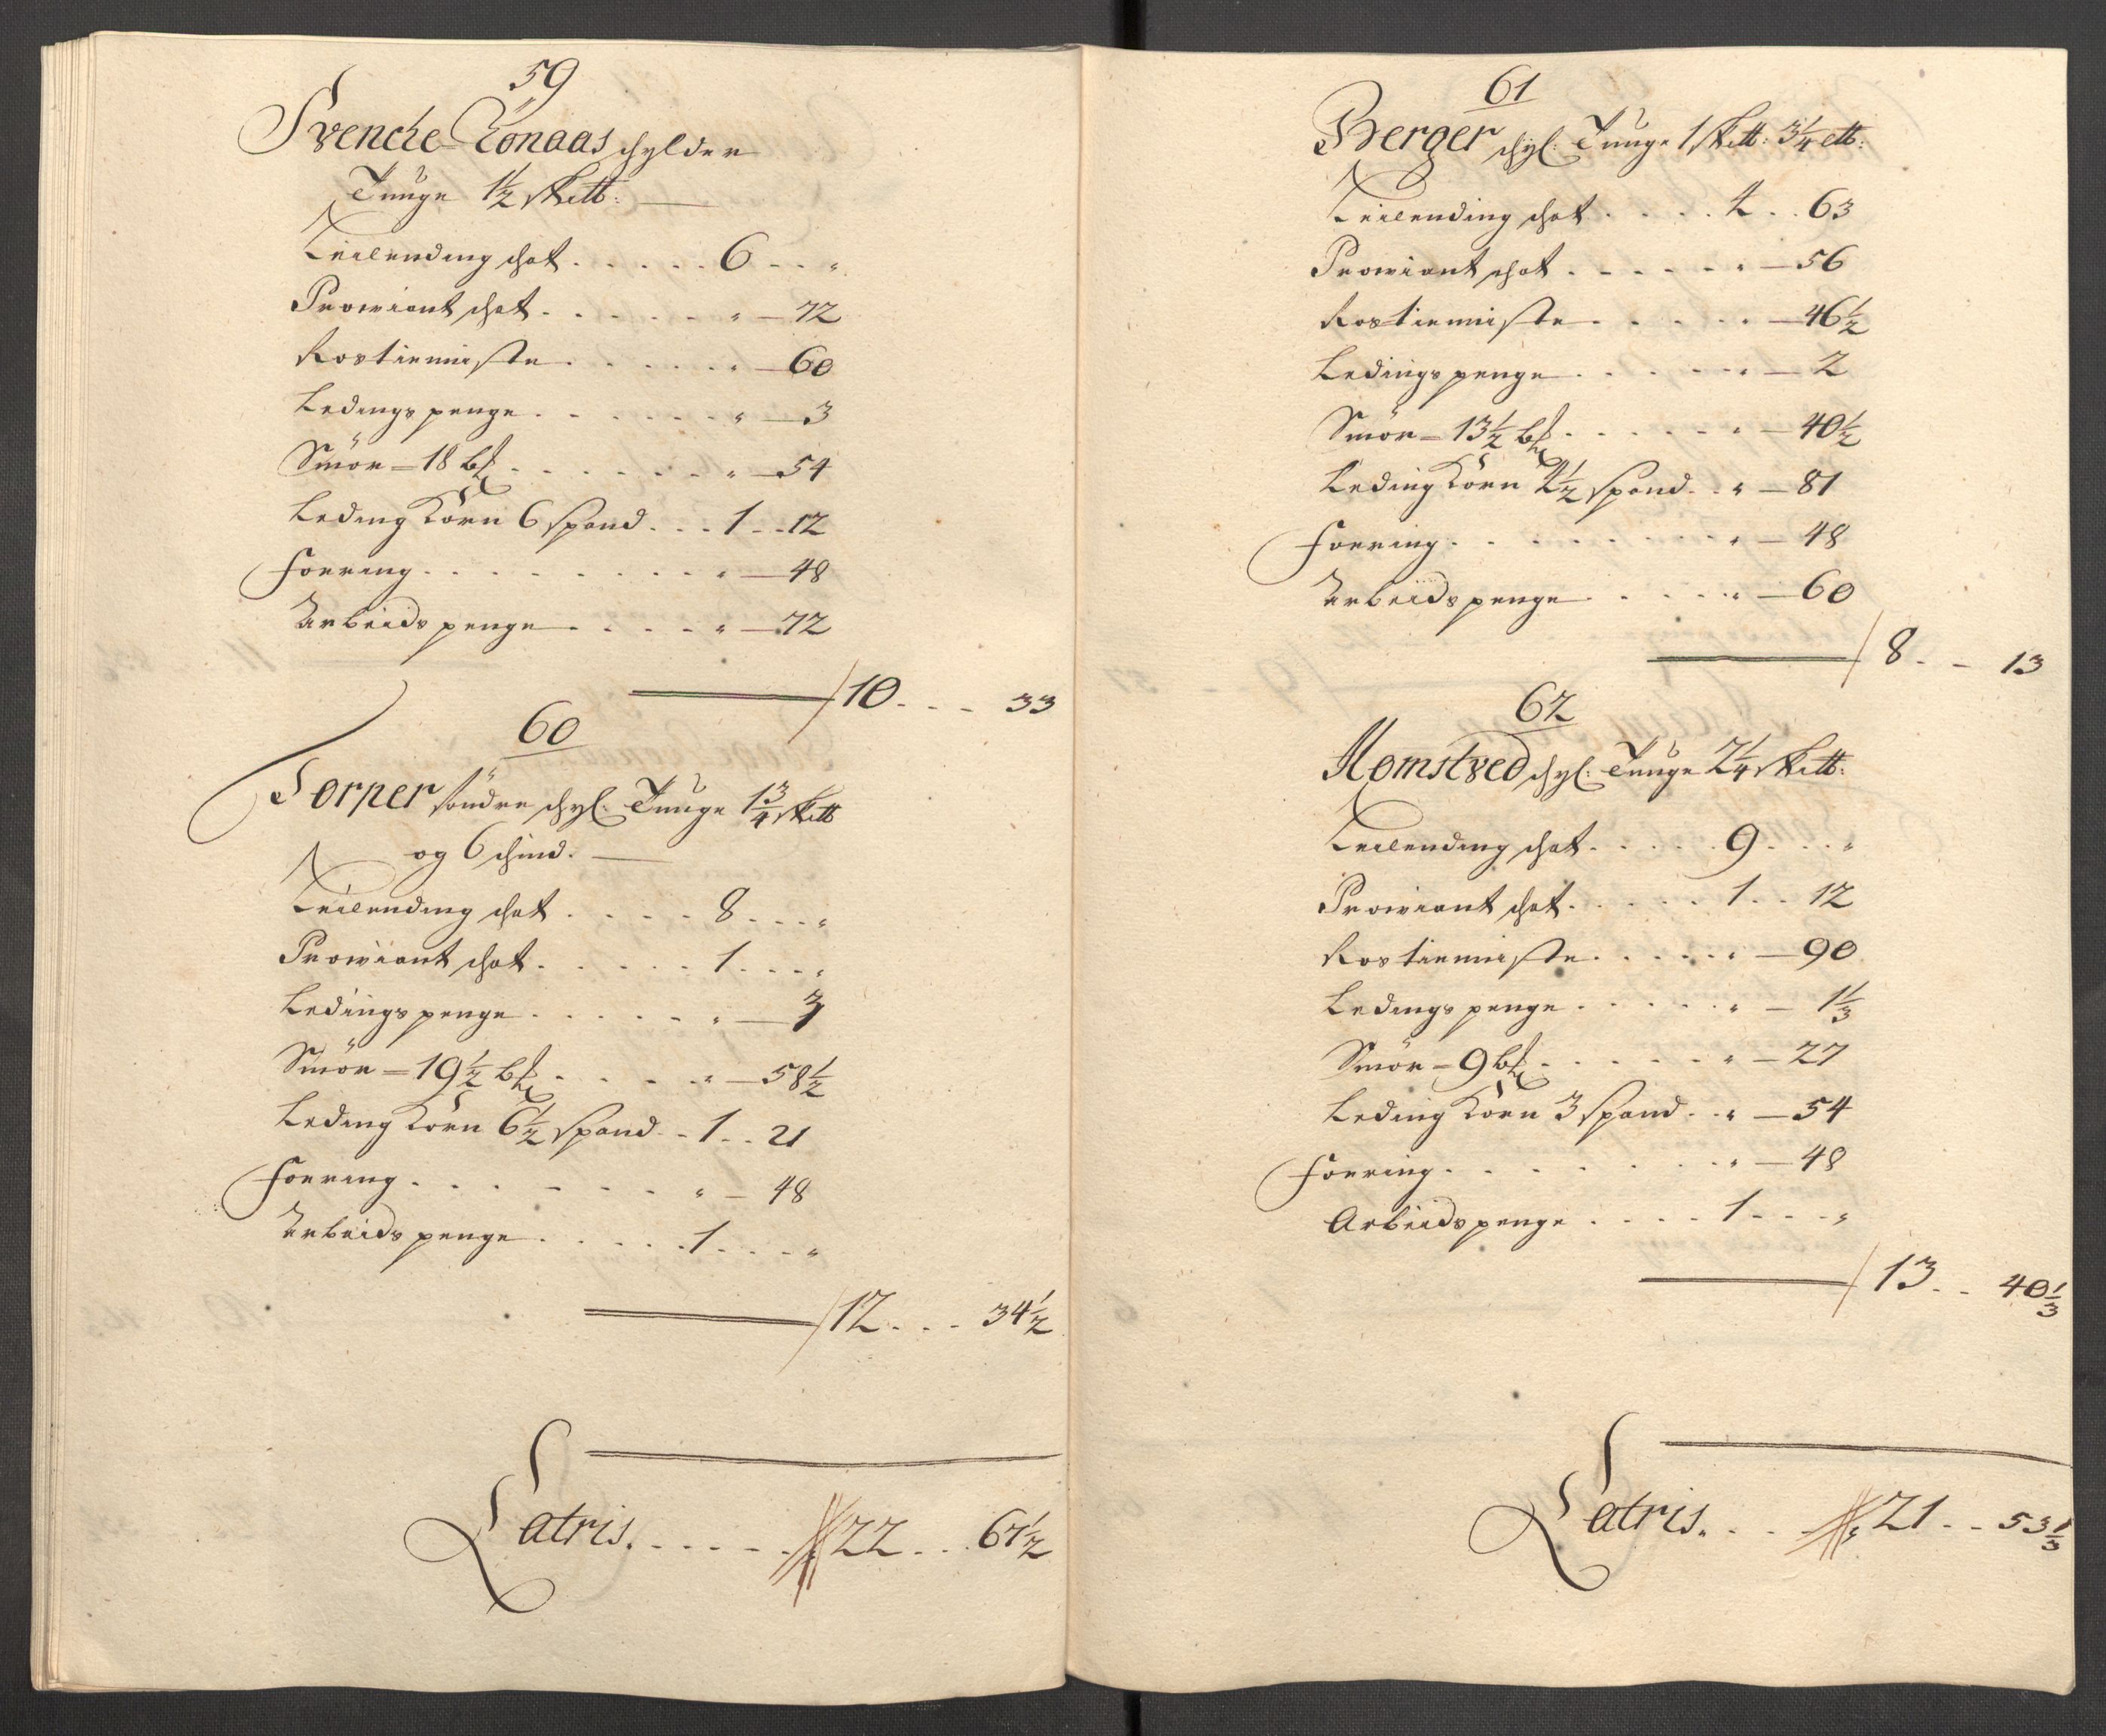 59
Svenche Rönaas schylder
Tunge 1½ sk℔:
Leilending schat . . . . . 6 . . "
Prowiant schat . . . . . . " — 72
Rostieniste . . . . . . " — 60
Ledings penge . . . . . . " — 3
Smör = 18 bḷ . . . . . . " — 54
Leding Korn 6 spand . . . 1 . . 12
Foering . . . . . . . . " — 48
Arbeids penge . . . . " — 72
10 . . . 33
60
Torper söndre schyl: Tunge 1¾ sk℔
og 6 schind.
Leilending schat . . . . 8 . . . "
Prowiant schat . . . . . 1 . . . "
Ledings penge . . . . . " — 3
Smör = 19½ bḷ . . . . " — 58½
Leding Korn 6½ spand . . 1 . . 21
Foering . . . . . . . " — 48
Arbeids penge . . . . . 1 . . . "
12 . . . 34½
Latris . . . . . . 22 . . . 67½
61
Berger schyl: Tunge 1 sk℔: 3¼ ℔:
Leilending schat . . . . 4 . . 63
Prowiant schat . . . . . . " — 56
Rostieniste . . . . . " — 46½
Ledings penge . . . . . . " — 2
Smör = 13½ bḷ . . . . . . " — 40½
Leding Korn 4½ spand . . " — 81
Foering . . . . . . . . " — 48
Arbeids penge . . . . . " — 60
8 . . 13
62
Homstved schyl: Tunge 2¼ sk℔:
Leilending schat . . . . . 9 . . . "
Prowiant schat . . . . . 1 . . 12
Rostieniste . . . . . " — 90
Ledings penge . . . . . " — 1⅓
Smör = 9 bḷ . . . . . . " — 27
Leding Korn 3 spand . . " — 54
Foering . . . . . . . " — 48
Arbeids penge . . . . 1 . . . "
13 . . 40⅓
Latris . . . . 21 . . 53⅓